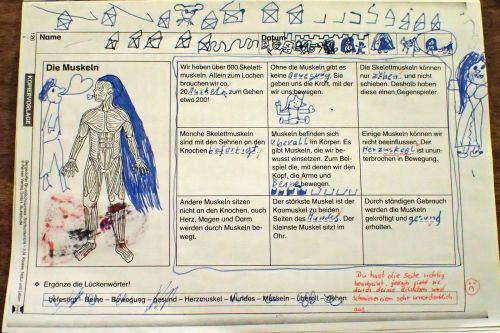 Name
Datum
Die Muskeln
Wir haben über 600 Skelett-
muskeln. Allein zum Lachen
brauchen wir ca.
20 Muskeln, zum Gehen
etwa 200!
Ohne die Muskeln gibt es
keine Bewegung. Sie
geben uns die Kraft, mit der
wir uns bewegen.
Die Skelettmuskeln können
nur ziehen und nicht
schieben. Deshalb haben
diese einen Gegenspieler.
Manche Skelettmuskeln
sind mit den Sehnen an den
Knochen befestigt.
Muskeln befinden sich
überall im Körper. Es
gibt Muskeln, die wir be-
wusst einsetzen. Zum Bei-
spiel die, mit denen wir den
Kopf, die Arme und
Beine bewegen.
Einige Muskeln können wir
nicht beeinflussen. Der
Herzmuskel ist unun-
terbrochen in Bewegung.
Andere Muskeln sitzen
nicht an den Knochen, auch
Herz, Magen und Darm
werden durch Muskeln be-
wegt.
Der stärkste Muskel ist der
Kaumuskel zu beiden
Seiten des Mundes. Der
kleinste Muskel sitzt im
Ohr.
Durch ständigen Gebrauch
werden die Muskeln
gekräftigt und gesund
erhalten.
Ergänze die Lückenwörter!
befestigt – Beine – Bewegung – gesund – Herzmuskel – Mundes – Muskeln – überall – ziehen
Du hast die Seite richtig
bearbeitet, jedoch sieht sie
durch deine Bildchen und
Schmierereien sehr unordentlich
aus.
KOPIERVORLAGE